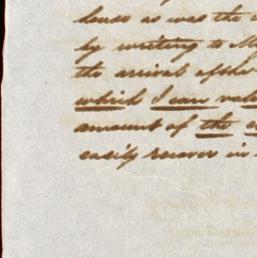 as was the
by writing to
the arrival of the
which I can
amount of the
easily recover in